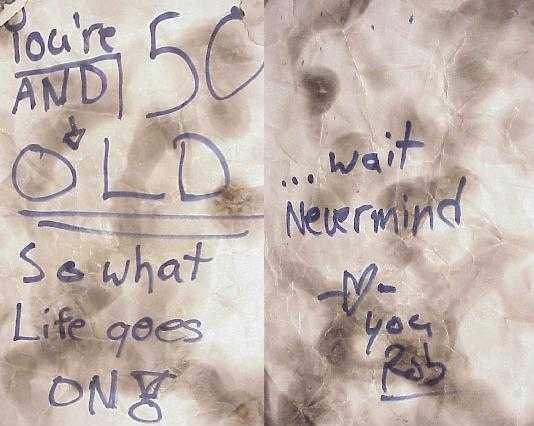 You're 50
AND
OLD
So what
Life goes
ON!
...wait
Nevermind
you
Rob